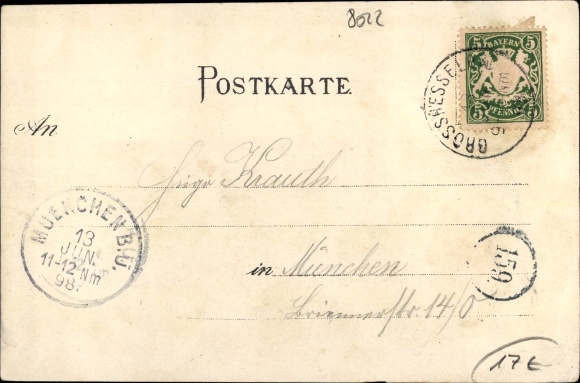 8022
POSTKARTE
5 BAYERN 5
5 PFENNIG 5
GROSSHESSEL
An
Hugo Krauth
MUENCHEN B.Ü.
13
JUN.
11-12 Nm
98.
159
in München
Briennerstr. 14/0
17€